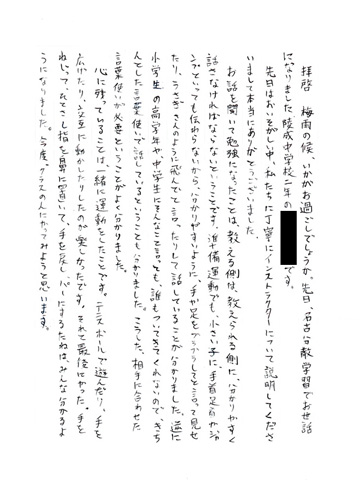 拝啓 梅雨の候、いかがお過ごしでしょうか。先日、名古屋散学習でお世話
になりました陵成中学校二年の
です。
先日はおいそがしい中、私たちに丁寧にインストラクターについて説明してくださ
いまして本当にありがとうございました。
お話を聞いて勉強になったことは、教える側は、教えられる側に、分かりやすく
話さなければならないということです。準備運動でも、小さい子に、手首足首がジャ
ンプといっても伝わらないから、分かりやすいように、手や足をブラブラしてと言って見せ
たり、うさぎさんのように飛んでと言ったりして話していることが分かりました。逆に
小学生の高学年や、中学生にそんなこと言っても、誰もついてきてくれないので、きち
んとした言葉使いで話しているということも分かりました。こうした、相手に合わせた
言葉使いが必要ということがよく分かりました。
心に残っていることは、一緒に運動をしたことです。テニスボールで遊んだり、手を
広げたり、交互に動かしたりしたのが楽しかったです。それで最後にやった、手を
ねじって、出てきた指を鼻に置いて、手を戻し、パーにするたねは、みんな分かるよ
うになりました。今度、クラスの人にやってみようと思います。